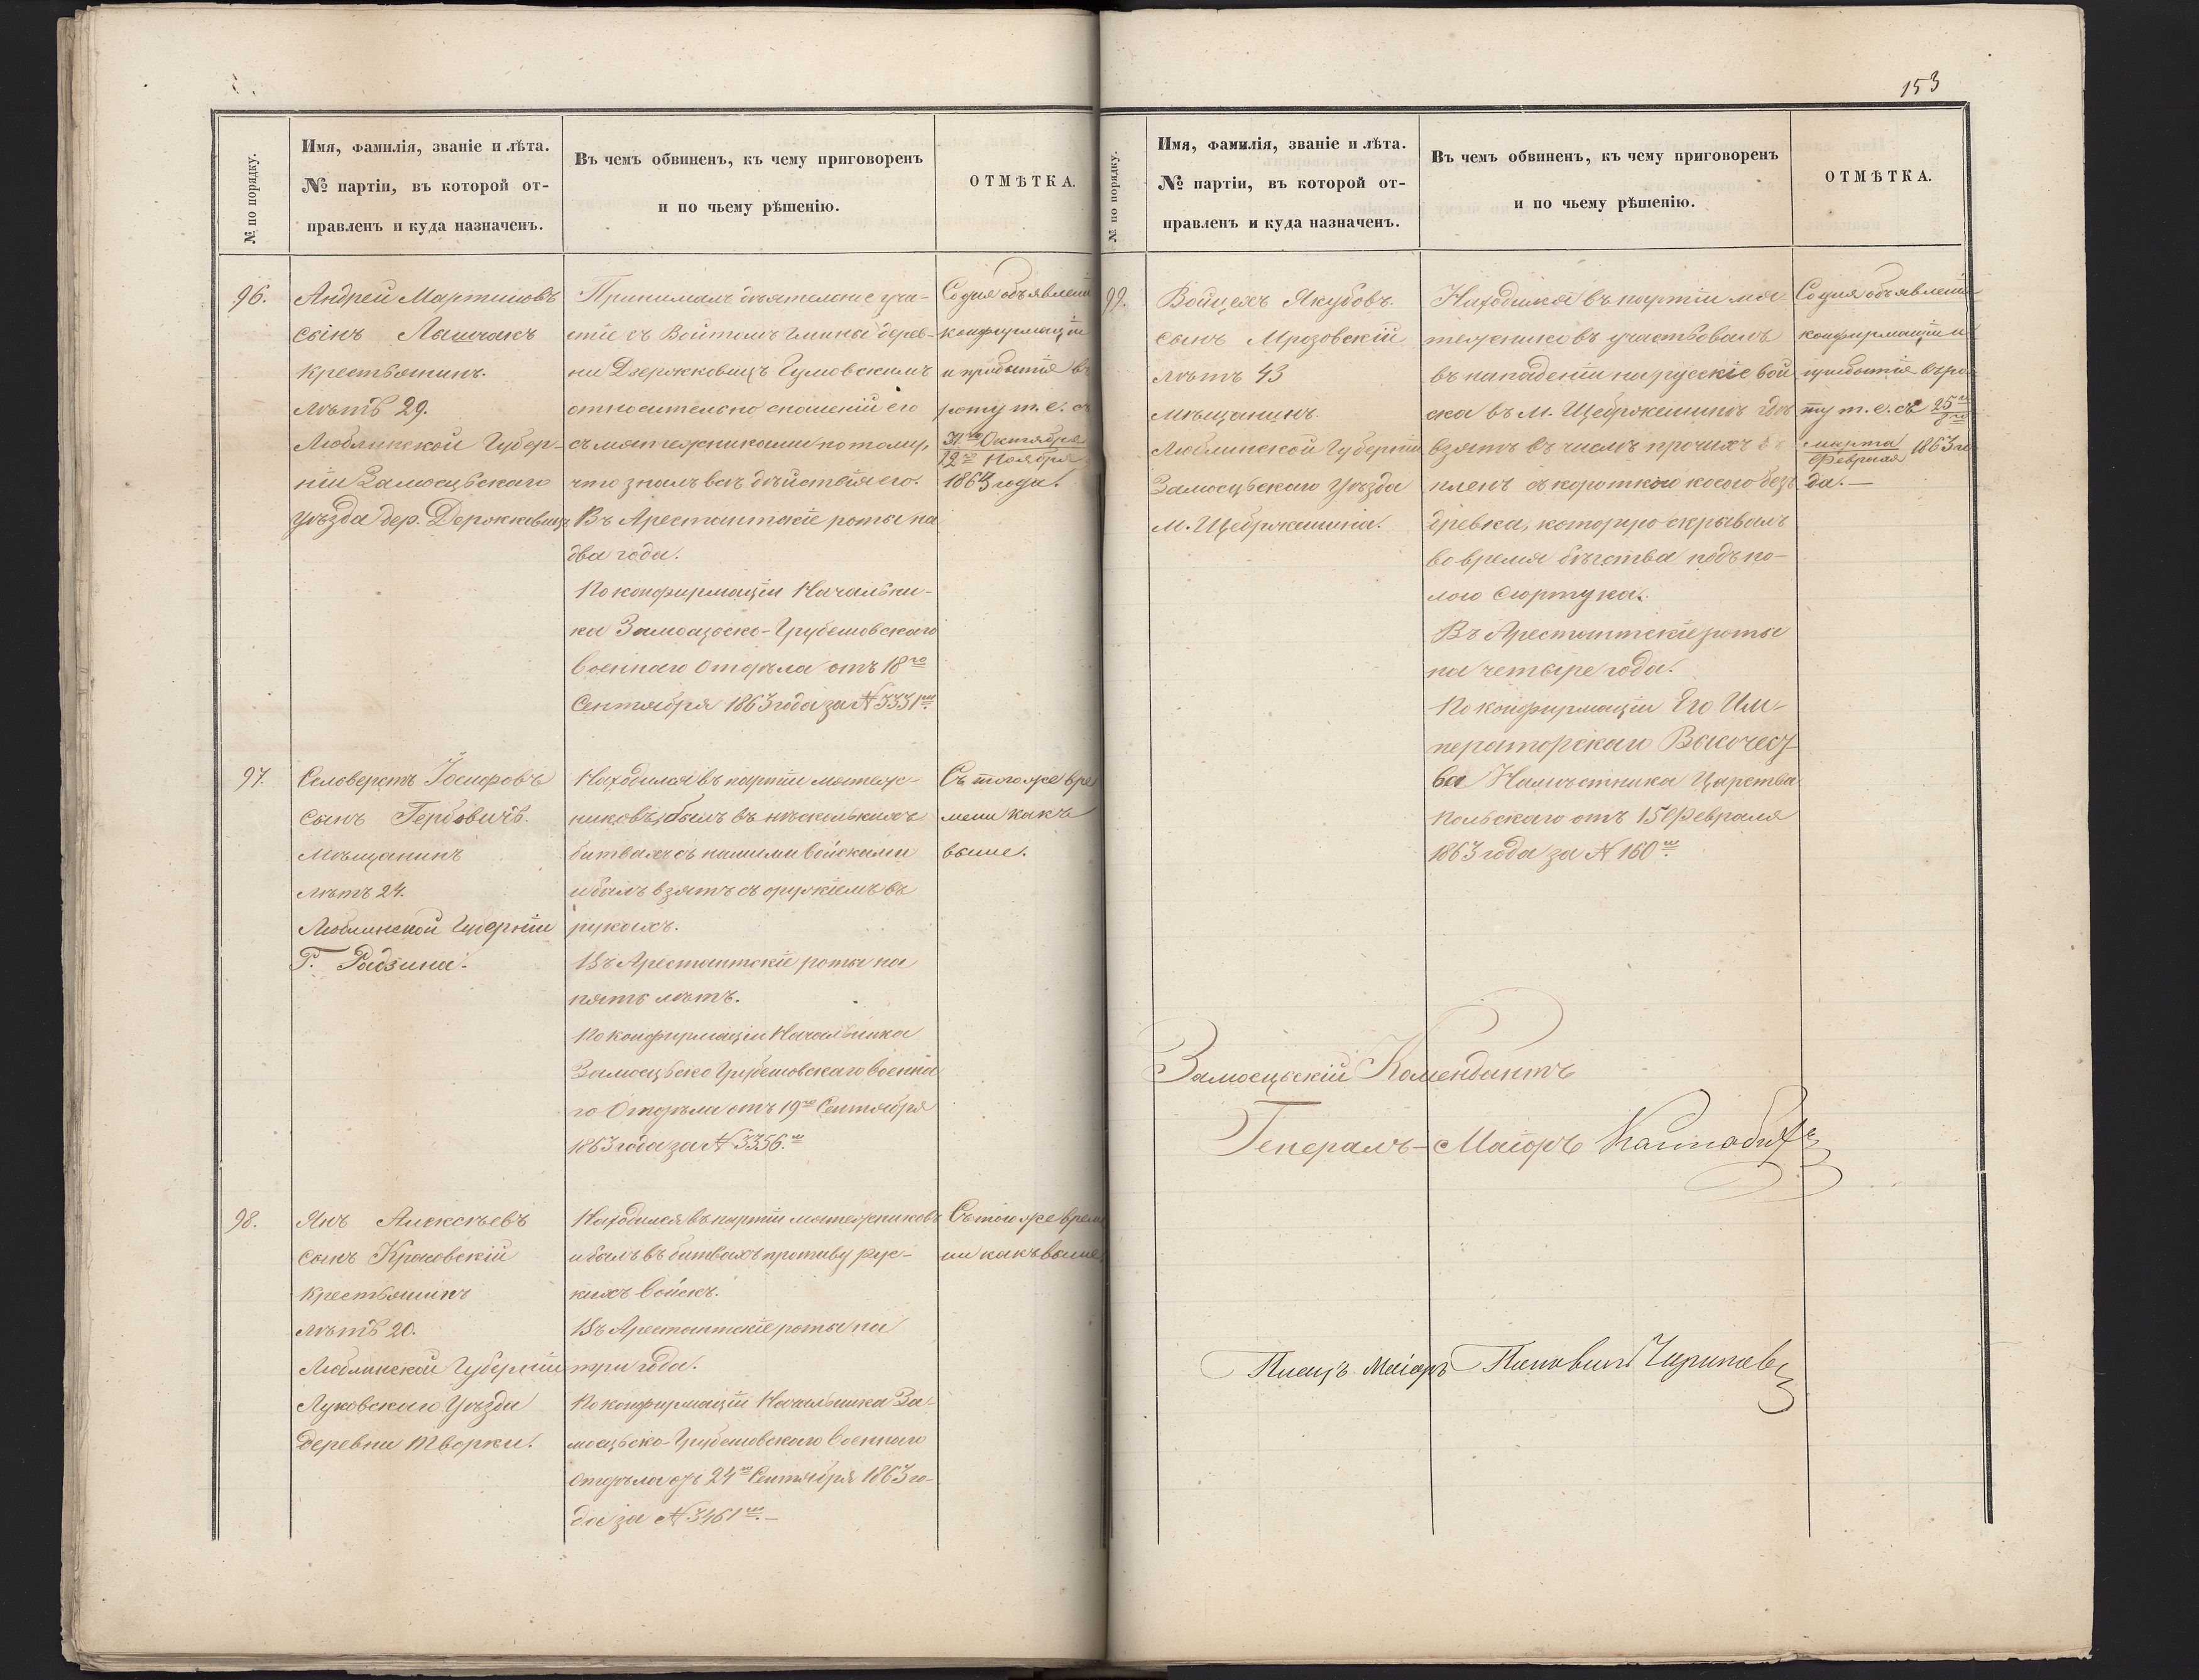 153
№ по порядку.
Имя, фамилія, званіе и лѣта.
№ партіи, въ которой от-
правленъ и куда назначенъ.
Въ чемъ обвиненъ, къ чему приговоренъ
и по чьему рѣшенію.
ОТМѢТКА.
96.
Андрей Мартиновъ
сынъ Лашчакъ
крестьянинъ.
лѣтъ 29.
Люблинской Губер-
ніи Замосцьскаго
уѣзда дер.
Принималъ дѣятельное уча-
стіе съ Войтомъ Гмины дерев-
ни Держковицъ Гумовскимъ
относительно сношеній его
съ мятежниками потому,
что зналъ всѣ дѣйствія его.
Въ Арестантскіе роты на
два года.
По конфирмаціи Начальни-
ка Замосцско-Грубешовскаго
военнаго Отдѣла отъ 18го
Сентября 1863 года за № 3331м.
Со дня объявленія
конфирмаціи
и прибытія въ
роту т. е. съ
31го Октября
12го Ноября
1863 года.
97.
Селоверстъ Іосифовъ
сынъ Гербовичъ.
Мѣщанинъ
лѣтъ 24.
Люблинской Губерніи
Г. Радзина.
Находился въ партіи мятеж-
никовъ, былъ въ нѣсколькихъ
битвахъ съ нашими войсками
и былъ взятъ съ оружіемъ въ
рукахъ.
Въ Арестантскіе роты на
пять лѣтъ.
По конфирмаціи Начальника
Замосцьско Грубешовскаго военна
го Отдѣла отъ 19го Сентября
1863 года за № 3356.м
Съ того же вре
мени какъ
выше.
98.
Янъ Алексѣевъ
сынъ Красовскій
крестьянинъ
лѣтъ 20.
Люблинской Губерніи
Луковскаго Уѣзда
деревни Творки.
Находился въ партіи мятежниковъ
и былъ въ битвахъ противу рус-
кихъ войскъ.
Въ Арестантскіе роты на
три года.
По конфирмаціи Начальника За-
мосцьско-Грубешовскаго военнаго
отдѣла отъ 24го Сентября 1863 го-
да за № 3461м.—
Съ того же време
ни какъ выше.
№ по порядку.
Имя, фамилія, званіе и лѣта.
№ партіи, въ которой от-
правленъ и куда назначенъ.
Въ чемъ обвиненъ, къ чему приговоренъ
и по чьему рѣшенію.
ОТМѢТКА.
99.
Войцехъ Якубовъ.
сынъ Мрозовскій
лѣтъ 43
Мѣщанинъ.
Люблинской Губерніи
Замосцьскаго Уѣзда
М. Щебржешина.
Находился въ партіи мя-
тежниковъ участвовалъ
въ нападеніи на русскіе вой
ска въ М. Щебржешинѣ гдѣ
взятъ въ числѣ прочихъ въ
плѣнъ съ короткою косою безъ
древка, которую скрывалъ
во время бѣгства подъ по-
лою сюртука.
Въ Арестантскіе роты
на четыре года.
По конфирмаціи Его Им-
ператорскаго Высочест
ва Намѣстника Царства
Польскаго отъ 15 Февраля
1863 года за № 160м.
Со дня объявленія
конфирмаціи и
прибытія въ ро
ту т. е. съ 25го
9го
марта
Февраля 1863 го
да.—
Замосцьскій Комендантъ
Генералъ-Маіоръ
Плацъ Маіоръ